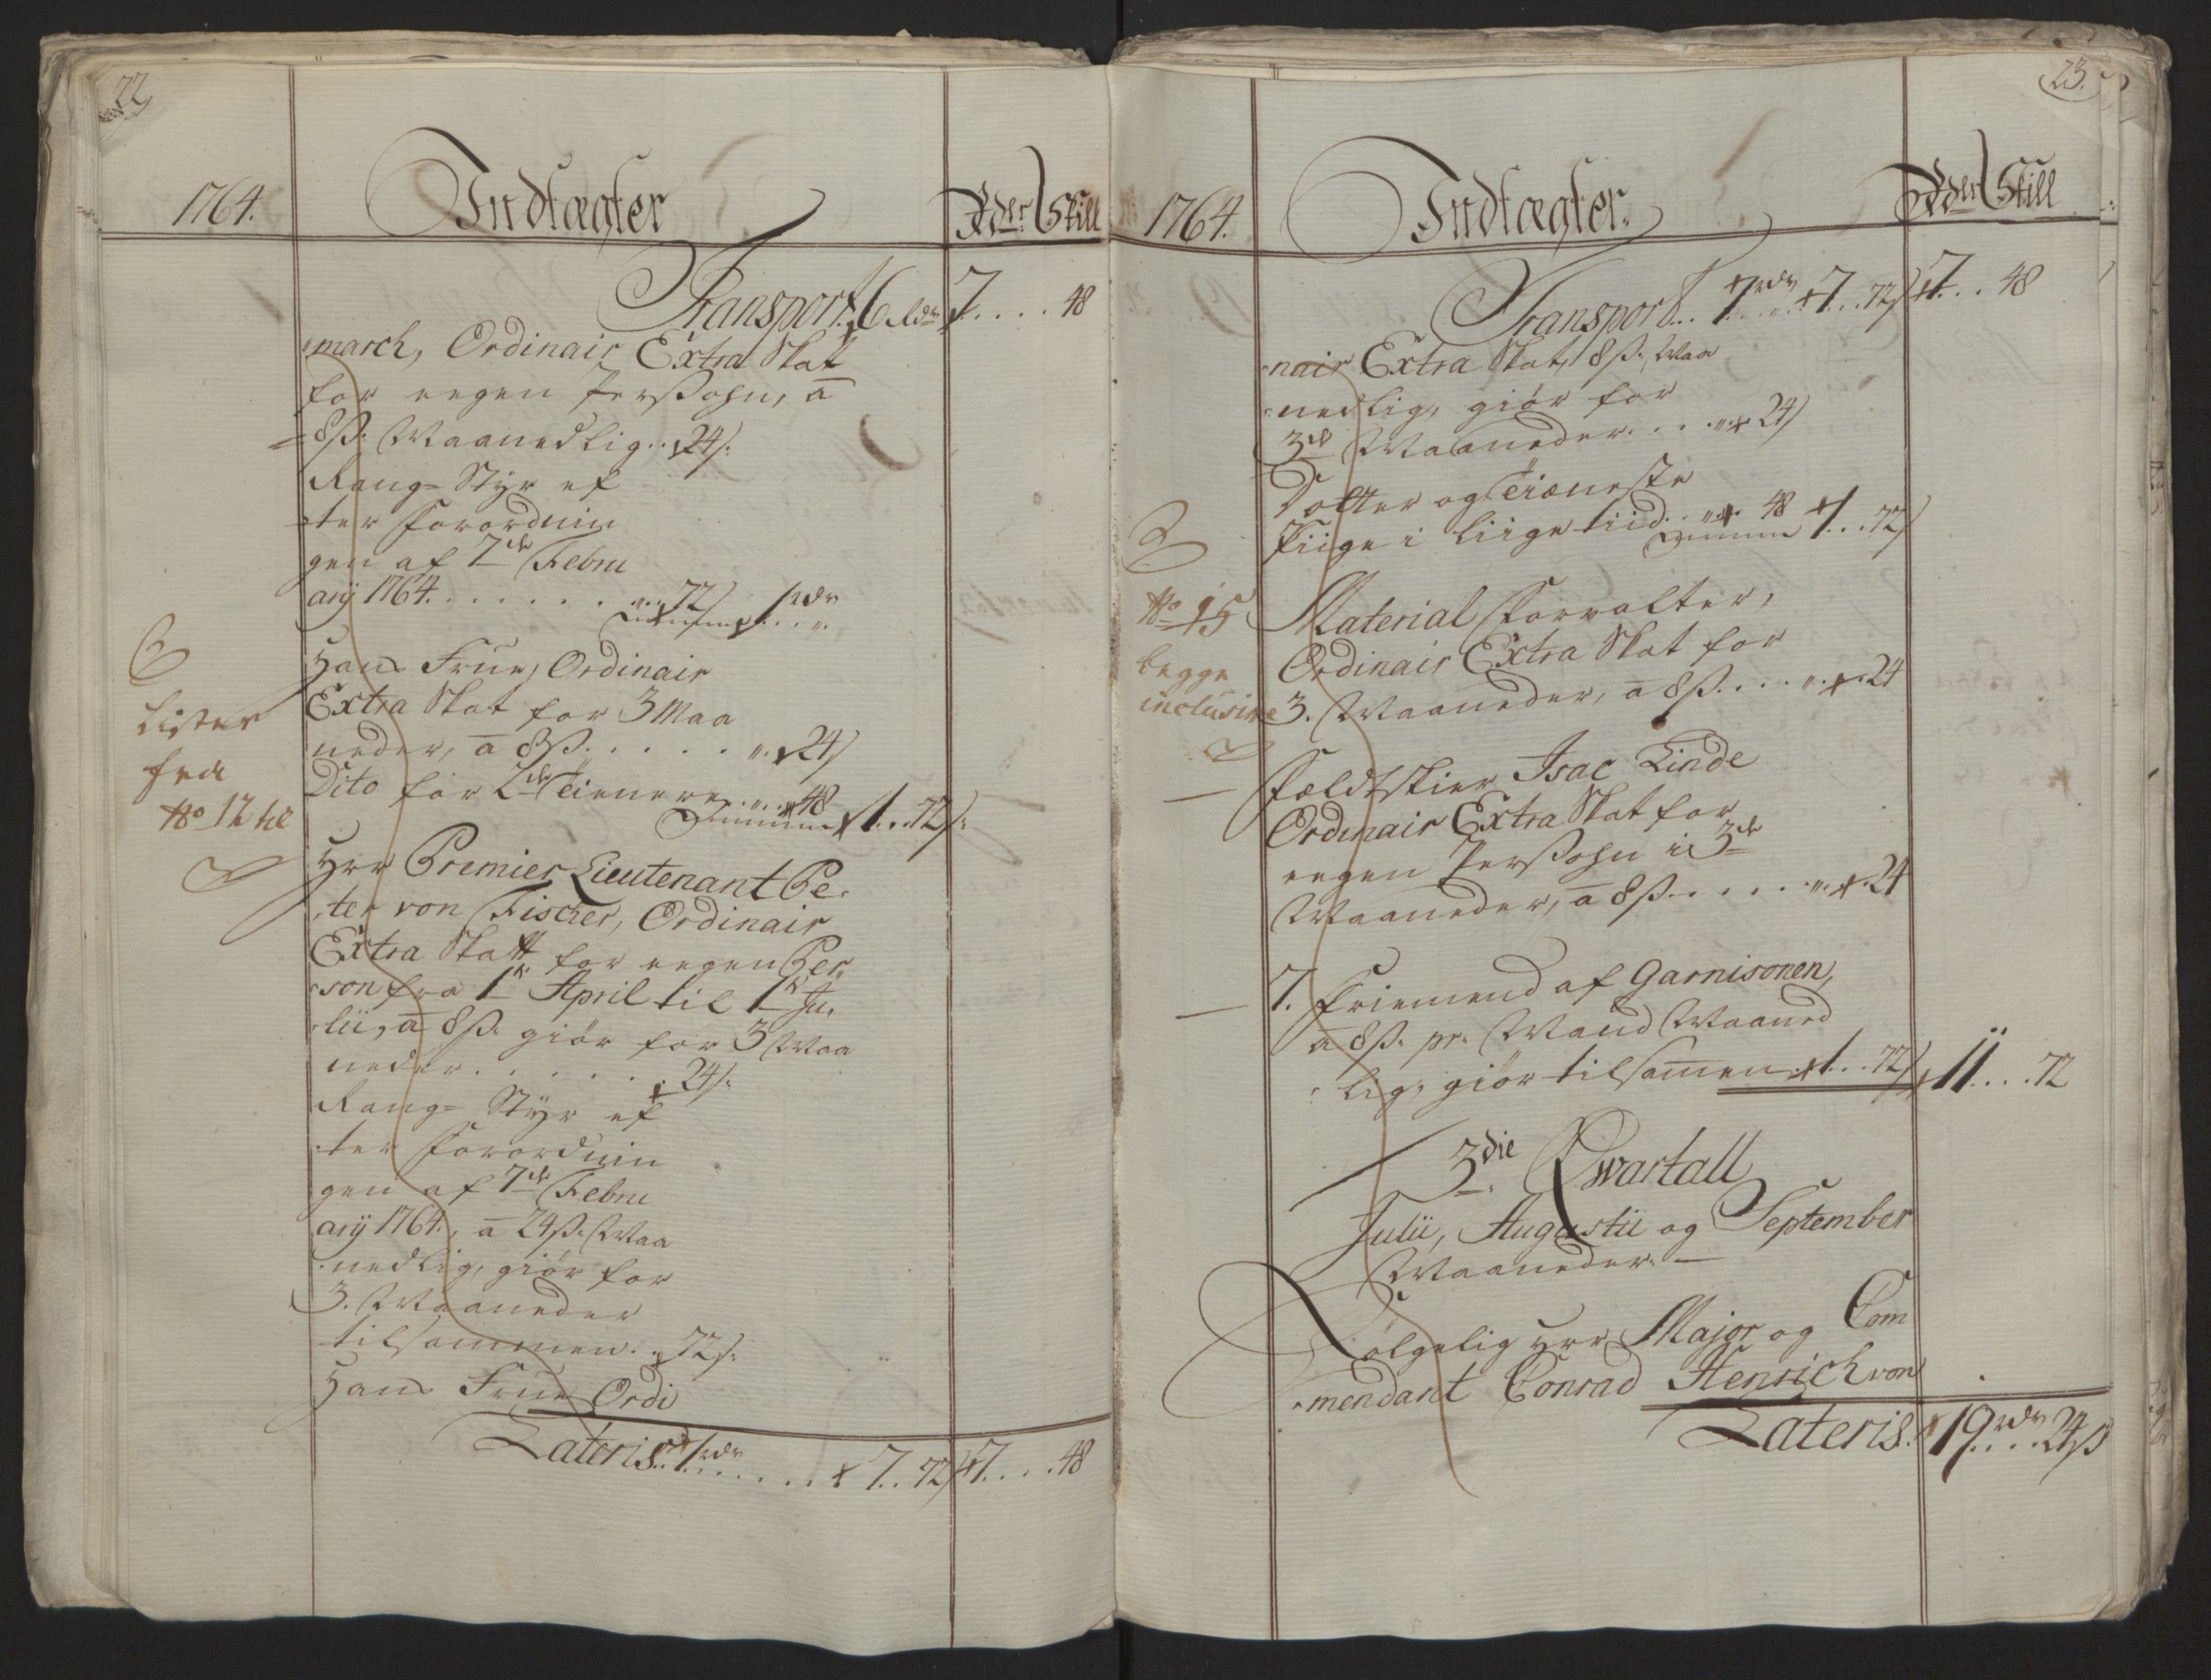 22
1764.
Indtægter
Rdlr Skill
Transport 6 rdr 7....48
march, Ordinair Extra Skat
for eegen Perssohn, a
8ß: Maanedlig.. 24ß:
Rang- Styr ef
ter Forordnin
gen af 7de Febru
arij 1764. ....... „. 72ß
Summa 1 rdr „.
Hans Frue, Ordinair
Extra Skat for 3 Maa
neder, a 8ß. ..... „. 24ß
Dito for 2de Tienere ... „. 48
Summa 1..72ß:
Lister
fra
No 12 til
Hrr Premier Lieutenant Pe-
ter von Fischer, Ordinair
Extra Skatt for eegen Per-
son fra 1te April til 1te Ju-
lii, a 8ß. giør for 3 Maa
neder. ..... 24ß:
Rang- Styr ef
ter Forordnin
gen af 7de Febru
arij 1764., a 24ß. Maa
nedlig, giør for
3. Maaneder
tilsammen. . 72ß:
Hans Frue Ordi
Lateris.. 1 rdr ...... 7..72ß 7....48
23.
1764.
Indtægter.
Rdlr Skill
Transport... 7 rdr „. 7..72ß 7...48
nair Extra Skat, 8ß. Maa
nedlig, giør for
3de Maaneder.... „. 24ß
Dotter og Tieneste
Piige i liige tiid.. „. 48
Summa 1..72ß
No 15
begge
inclusive
Material Forvalter,
Ordinair Extra Skat for
3. Maaneder, a 8ß. ... „. 24
Feldtskier Isac Linde
Ordinair Extra Skat for
eegen Perssohn i 3de
Maaneder, a 8ß. .... „. 24
7. Friemend af Garnisonen,
a 8ß. pr. Mand Maaned
lig, giør tilsamen 1..72ß 11....72
3die Qvartall
Julii, Augustii og September
Maaneder. —
Følgelig Hrr Major og Com
mendant Conrad Henrich von
Lateris. 19 rdr .... 24ß